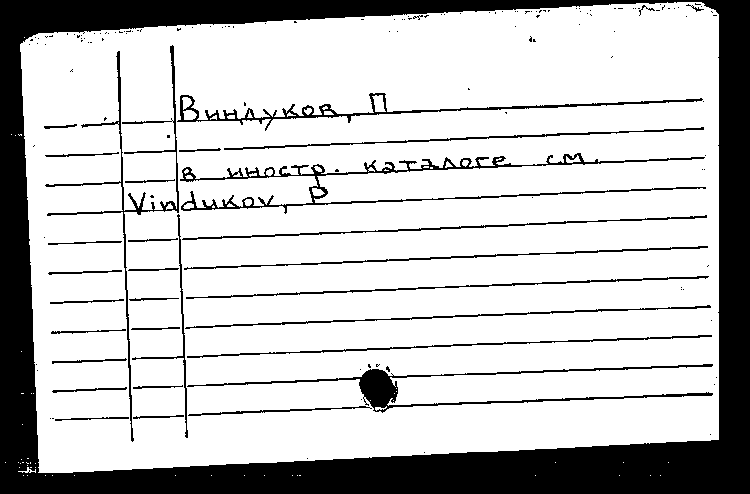 Виндуков, П
в иностр. каталоге см.
Vindukov, P